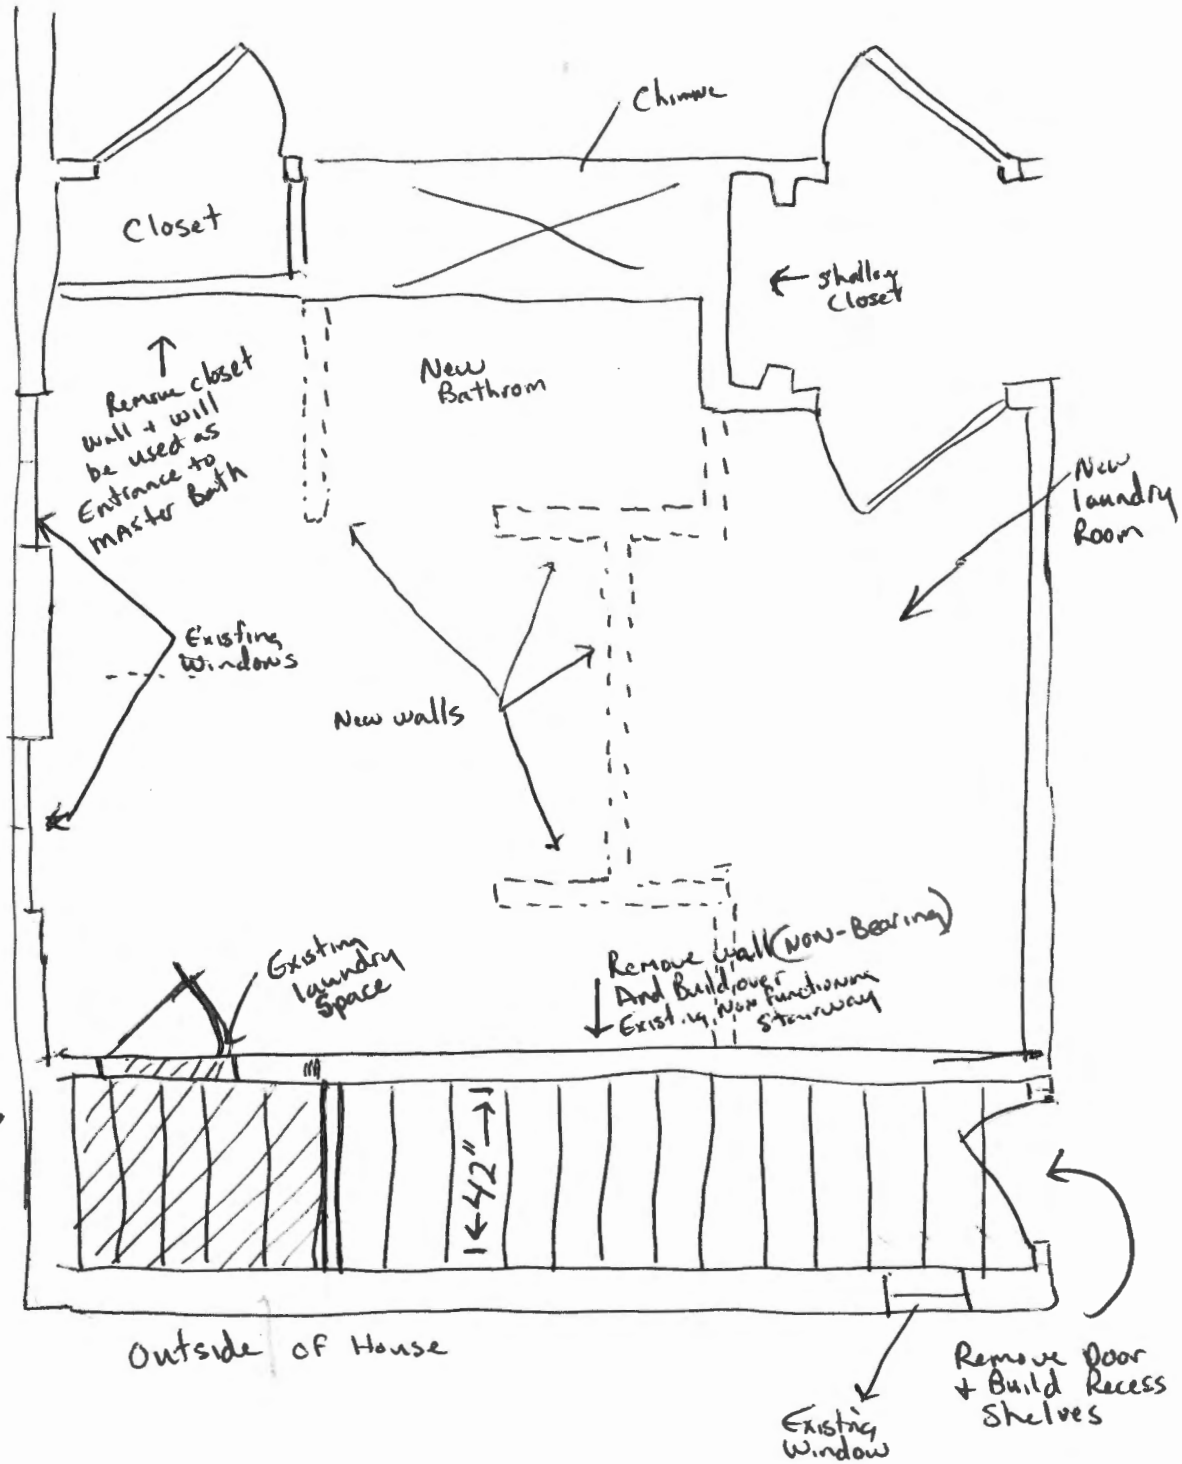 Chimne
Closet
← Shallow
Closet
Remove closet
wall + will
be used as
Entrance to
Master Bath
New
Bathrom
New
laundry
Room
Existing
Windows
New walls
Existing
laundry
Space
Remove wall (NON-Bearing)
And Build over
Existing Non functioning
Stairway
42"
Outside of House
Remove Door
+ Build Recess
Shelves
Existing
Window